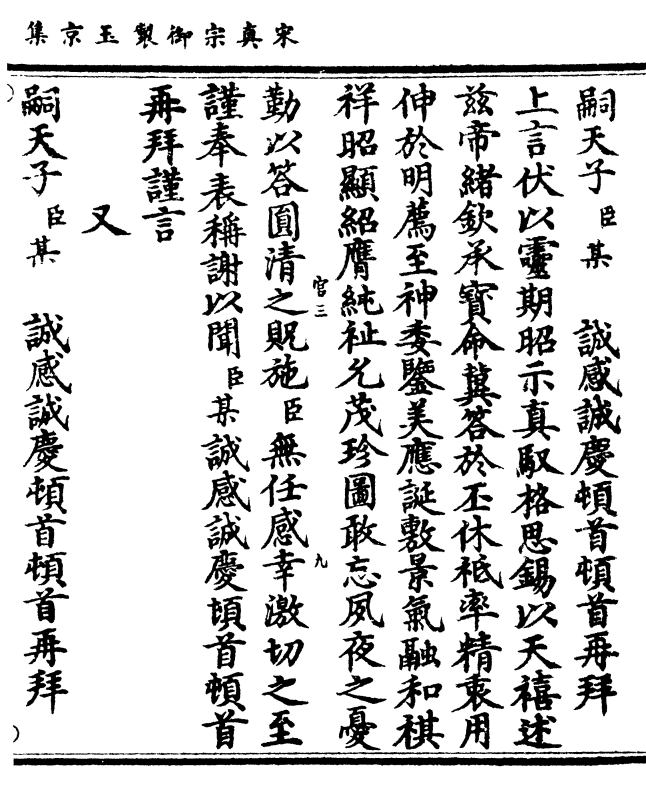 宋真宗御製玉京集
嗣天子臣某　誠感誠慶頓首頓首再拜
上言伏以靈期昭示真馭格思錫以天禧述
茲帝緒欽承寶命冀答於丕休祗率精衷用
伸於明薦至神委鑒美應誕敷景氣融和祺
祥昭顯紹膺純祉允茂珍圖敢忘夙夜之憂
宫三　九
勤以答圓清之貺施臣無任感幸激切之至
謹奉表稱謝以聞臣某誠感誠慶頓首頓首
再拜謹言
又
嗣天子臣某　誠感誠慶頓首頓首再拜